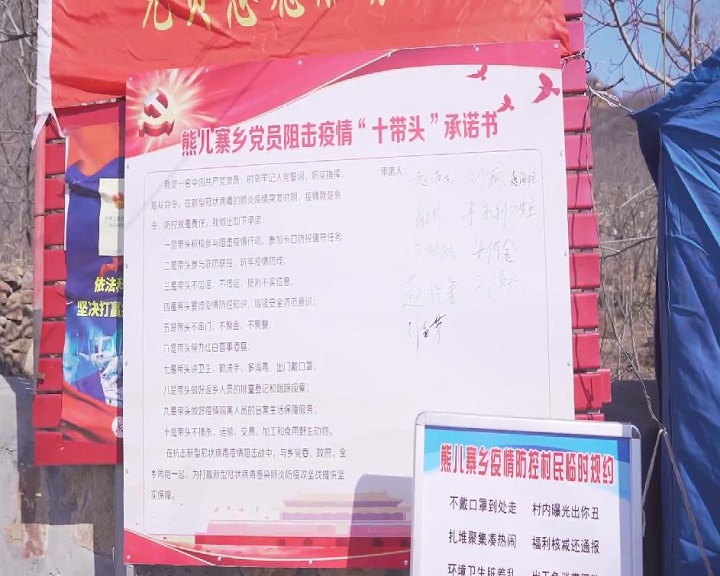 熊儿寨乡党员阻击疫情“十带头”承诺书
我是一名中国共产党党员,时刻牢记入党誓词,听党指挥,
服从命令。在新型冠状病毒的肺炎疫情突发时期,疫情就是命
令,防控就是责任,我做出如下承诺:
一是带头积极参与阻击疫情行动,参加卡口防控值守任务;
二是带头参与联防联控,筑牢疫情防线;
三是带头不信谣、不传谣,抵制不实信息;
四是带头宣传疫情防控知识,增强安全防范意识;
五是带头不串门、不聚会、不聚餐;
六是带头停办红白喜事酒宴;
七是带头讲卫生、勤洗手、多消毒、出门戴口罩;
八是带头做好返乡人员的排查登记和跟踪观察;
九是带头做好疫情隔离人员的日常生活保障服务;
十是带头不捕杀、运输、交易、加工和食用野生动物。
在抗击新型冠状病毒疫情阻击战中,与乡党委、政府、全
乡同胞一起,为打赢新型冠状病毒感染肺炎防疫攻坚战提供坚
实保障。
承诺人:
依法科
坚决打赢
熊儿寨乡疫情防控村民临时规约
不戴口罩到处走 村内曝光出你丑
扎堆聚集凑热闹 福利核减还通报
环境卫生脏差乱